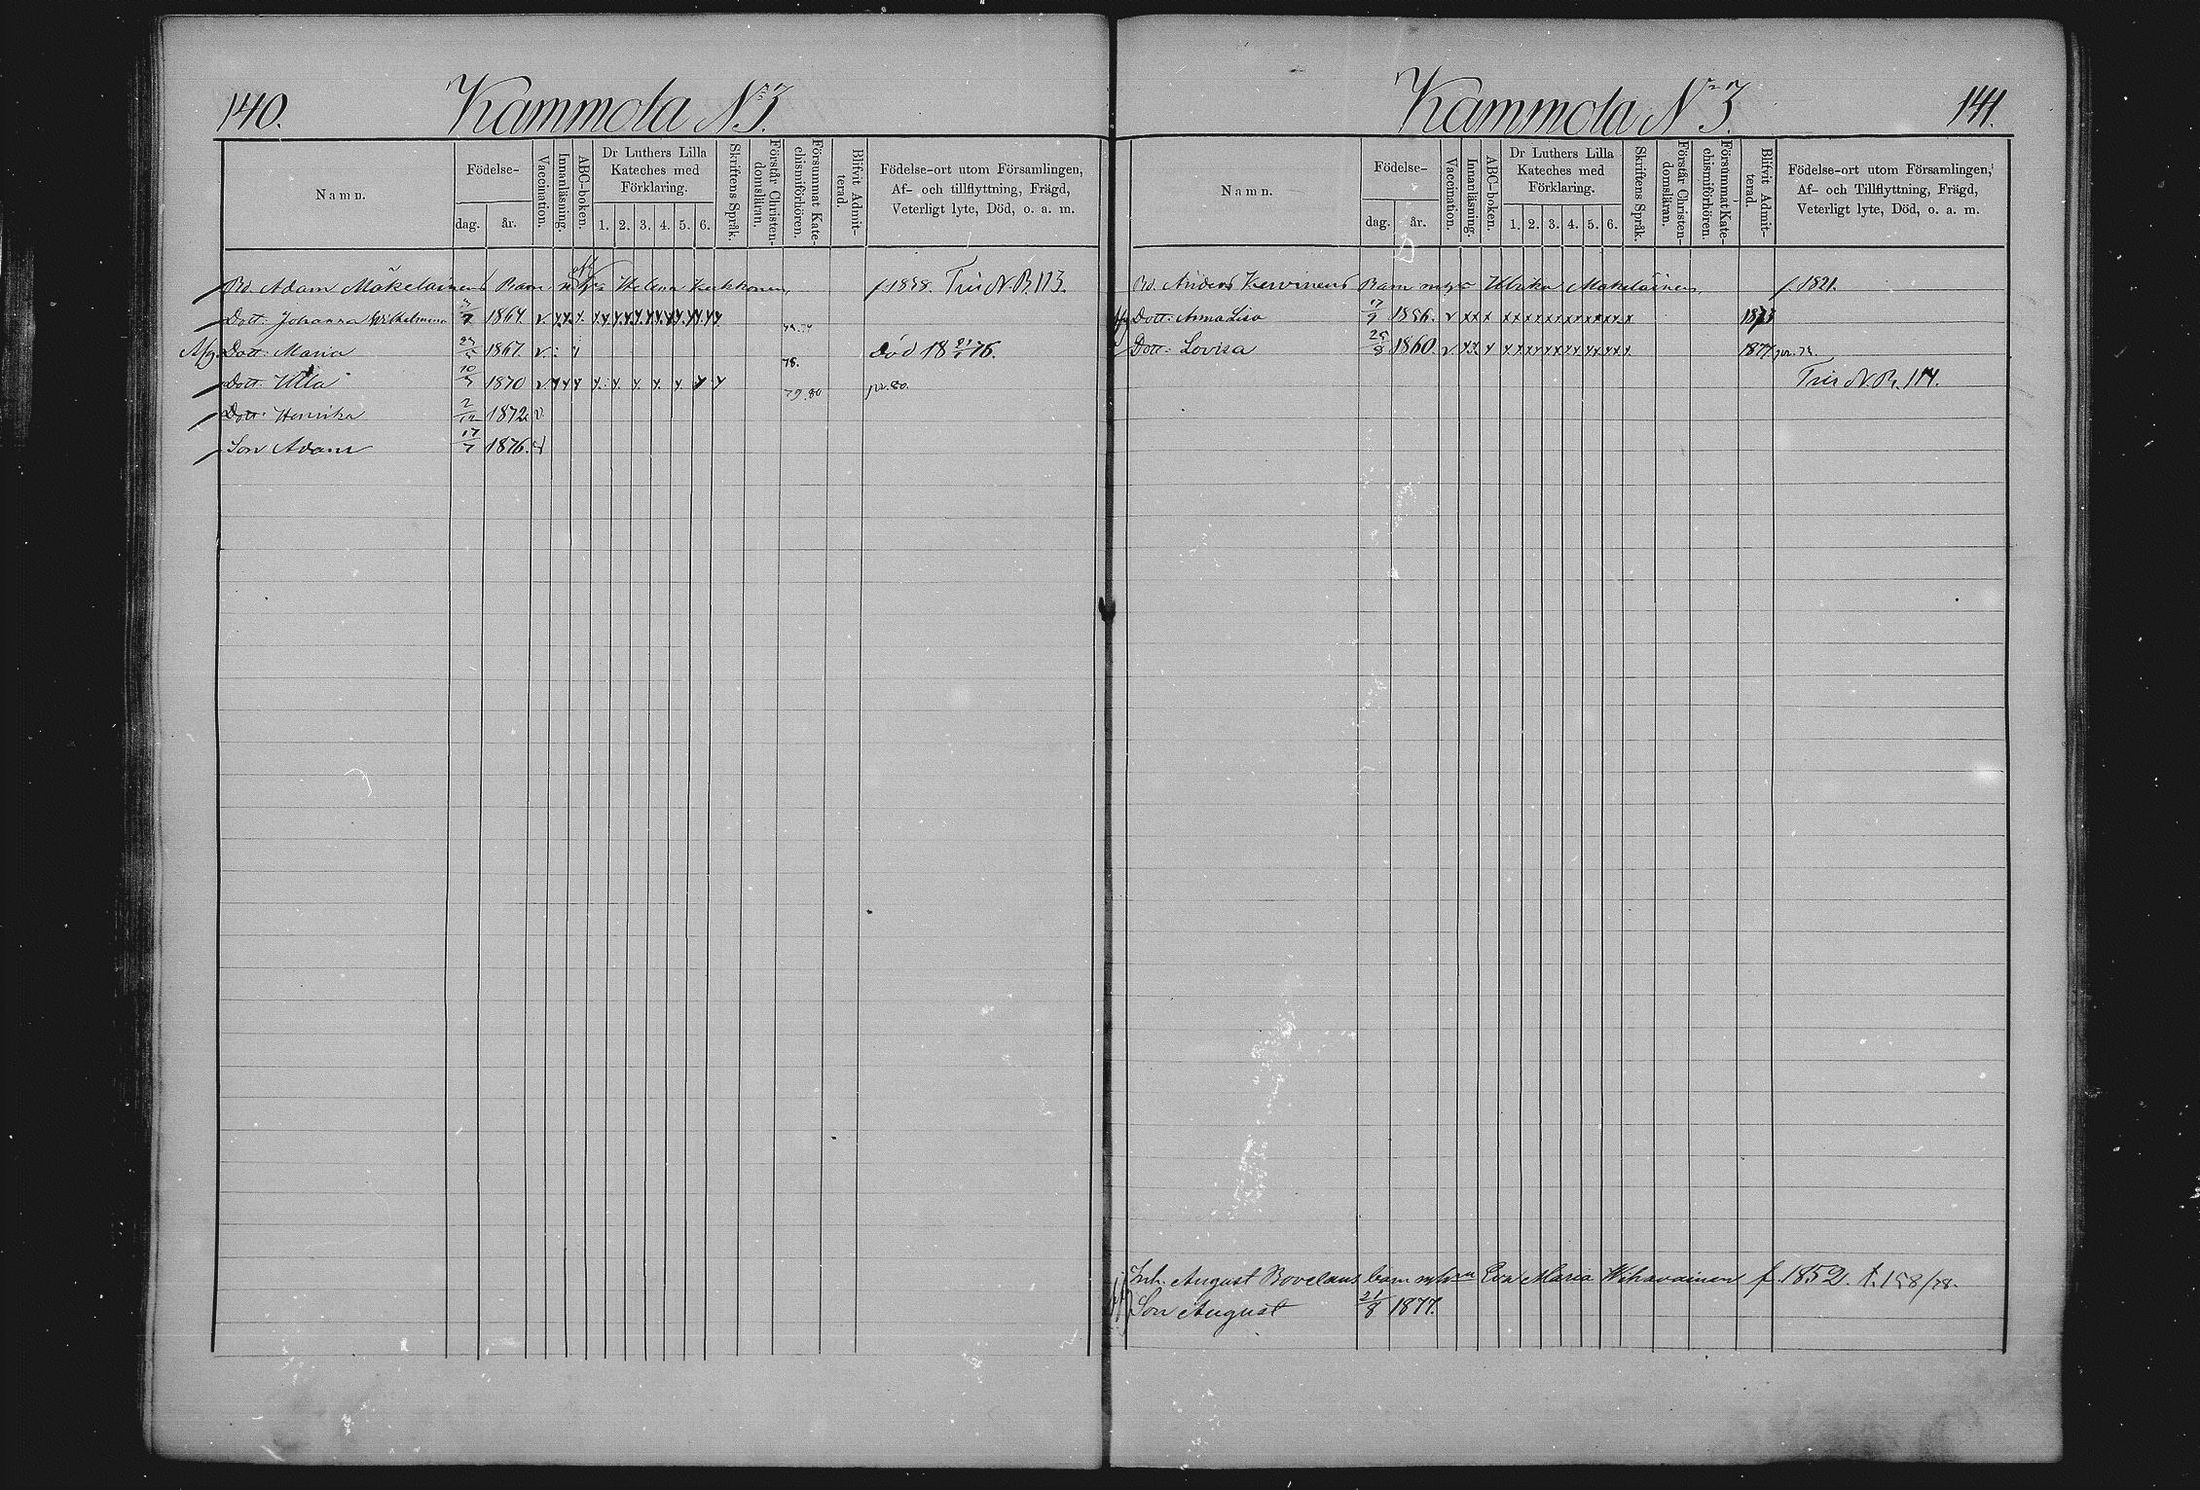 140. Kammola N:o 3.
Namn. Födelse- dag. år. Vaccination. Innanläsning. ABC-boken. Dr Luthers Lilla Kateches med Förklaring. 1. 2. 3. 4. 5. 6. Skriftens Språk. Förstår Christen-domsläran. Försummat Kate-chismiförhören. Blifvit Admit-terad. Födelse-ort utom Församlingen, Af- och tillflyttning, Frägd, Veterligt lyte, Död, o. a. m.
Bd. Adam Mäkeläinens Barn Helena Kukkonen, f 1838. N. B. 113.
Dott. Johanna Wilhelmina 1864 v.
Afg. Dott. Maria 1867. v. 76. död 18 21/1 76.
Dott. Ulla 10/7 1870 v 79.80 pr. 80.
Dott. Henrika 2/12 1872 v
Son Adam 17/7 1876. v
Kammola N:o 3. 141.
Namn. Födelse- dag. år. Vaccination. Innanläsning. ABC-boken. Dr Luthers Lilla Kateches med Förklaring. 1. 2. 3. 4. 5. 6. Skriftens Språk. Förstår Christen-domsläran. Försummat Kate-chismiförhören. Blifvit Admit-terad. Födelse-ort utom Församlingen, Af- och Tillflyttning, Frägd, Veterligt lyte, Död, o. a. m.
Bd. Anders Kervinens Barn Ulrika Mäkeläinen, f. 1821.
Dott. Anna Lisa 17/9 1856. v x x x x x x x x x x x x x x x x 1873
Dott. Lovisa 25/8 1860. v 1877
N. B. 114.
Inh. August Bovelans barn Eva Maria Wihavainen f. 1852.
Son August 21/8 1877.